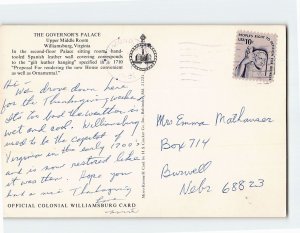 THE GOVERNOR'S PALACE
Upper Middle Room
Williamsburg, Virginia
In the second-floor Palace sitting room hand-
tooled Spanish leather wall covering corresponds
to the "gilt leather hanging" specified in a 1710
"Proposal for rendering the new House convenient
as well as Ornamental."
Hi —
We drove down here
for the Thanksgiving weekend
It's too bad the weather is
wet and cool. Williamsburg
used to be the capitol of
Virginia in the early 1700's
and is now restored like
it was then. Hope you
had a nice Thanksgiving
OFFICIAL COLONIAL WILLIAMSBURG CARD
10c
Mrs Emma Mathauser
Box 714
Burwell
Nebr 68823